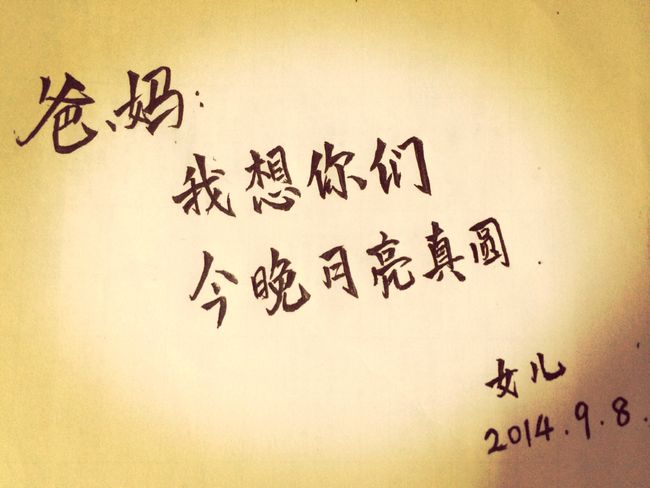 爸、妈:
我想你们
今晚月亮真圆.
女儿
2014.9.8.